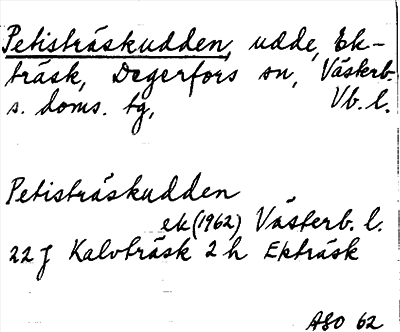 Petisträskudden, udde, Ek-
träsk, Degerfors sn, Västerb.
s. doms. tg, Vb. l.
Petisträskudden
ek (1962) Västerb. l.
22 J Kalvträsk 2 h Ekträsk
ASO 62